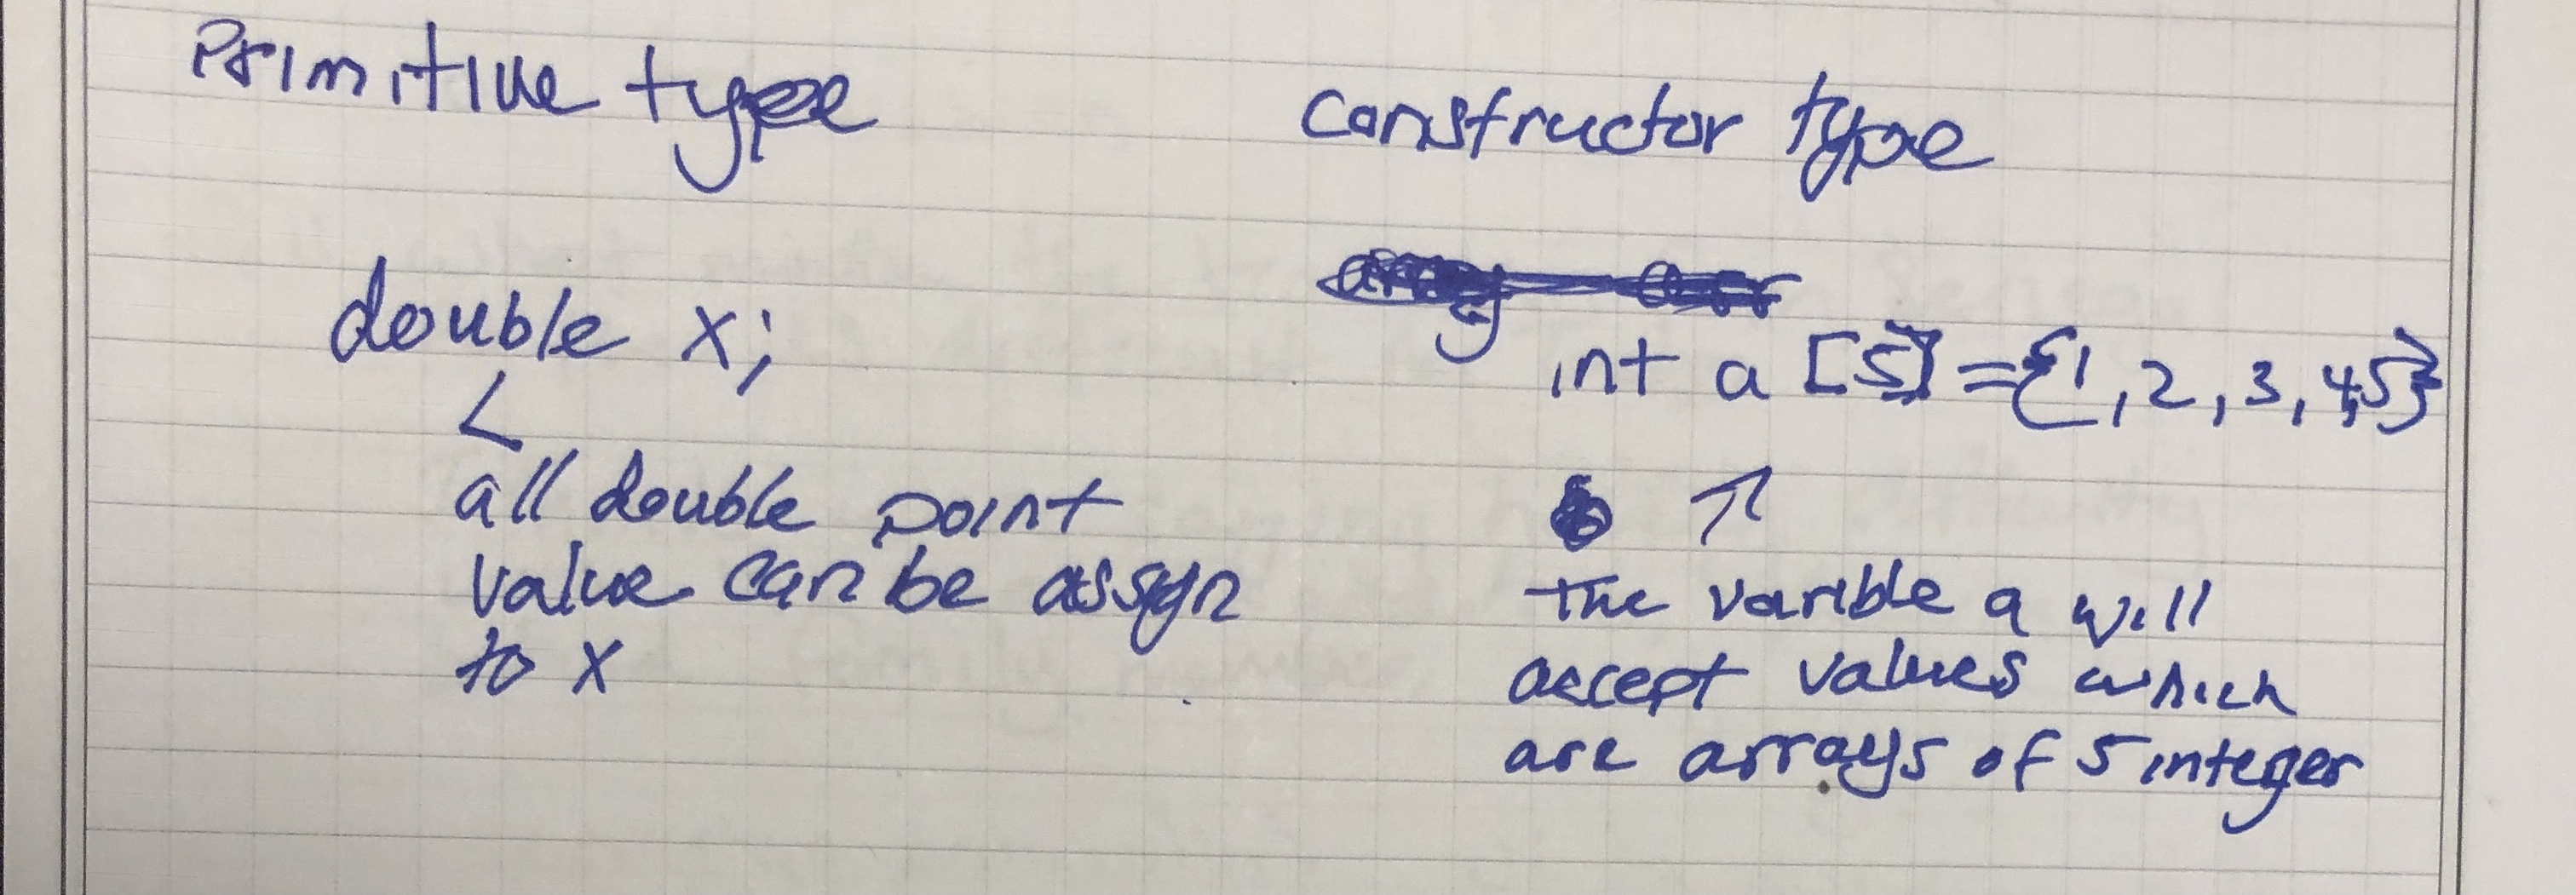 Primitive type
double x;
all double point
value can be assign
to x
constructor type
int a [5] = {1, 2, 3, 4, 5}
The varible a will
accept values which
are arrays of 5 integer